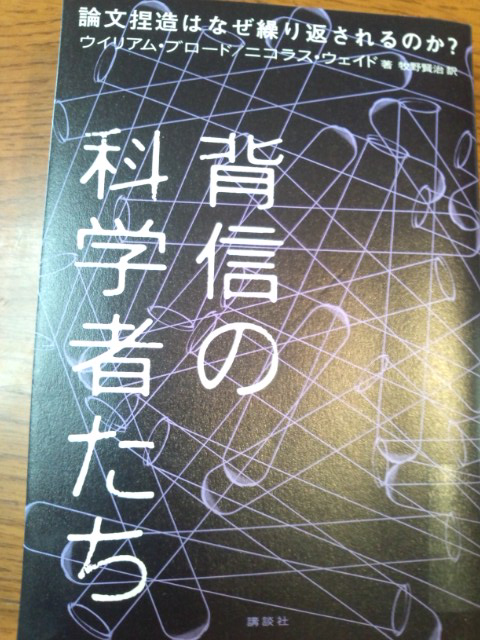 論文捏造はなぜ繰り返されるのか?
ウイリアム・ブロード/ニコラス・ウェイド 著 牧野賢治 訳
背信の
科学者たち
講談社